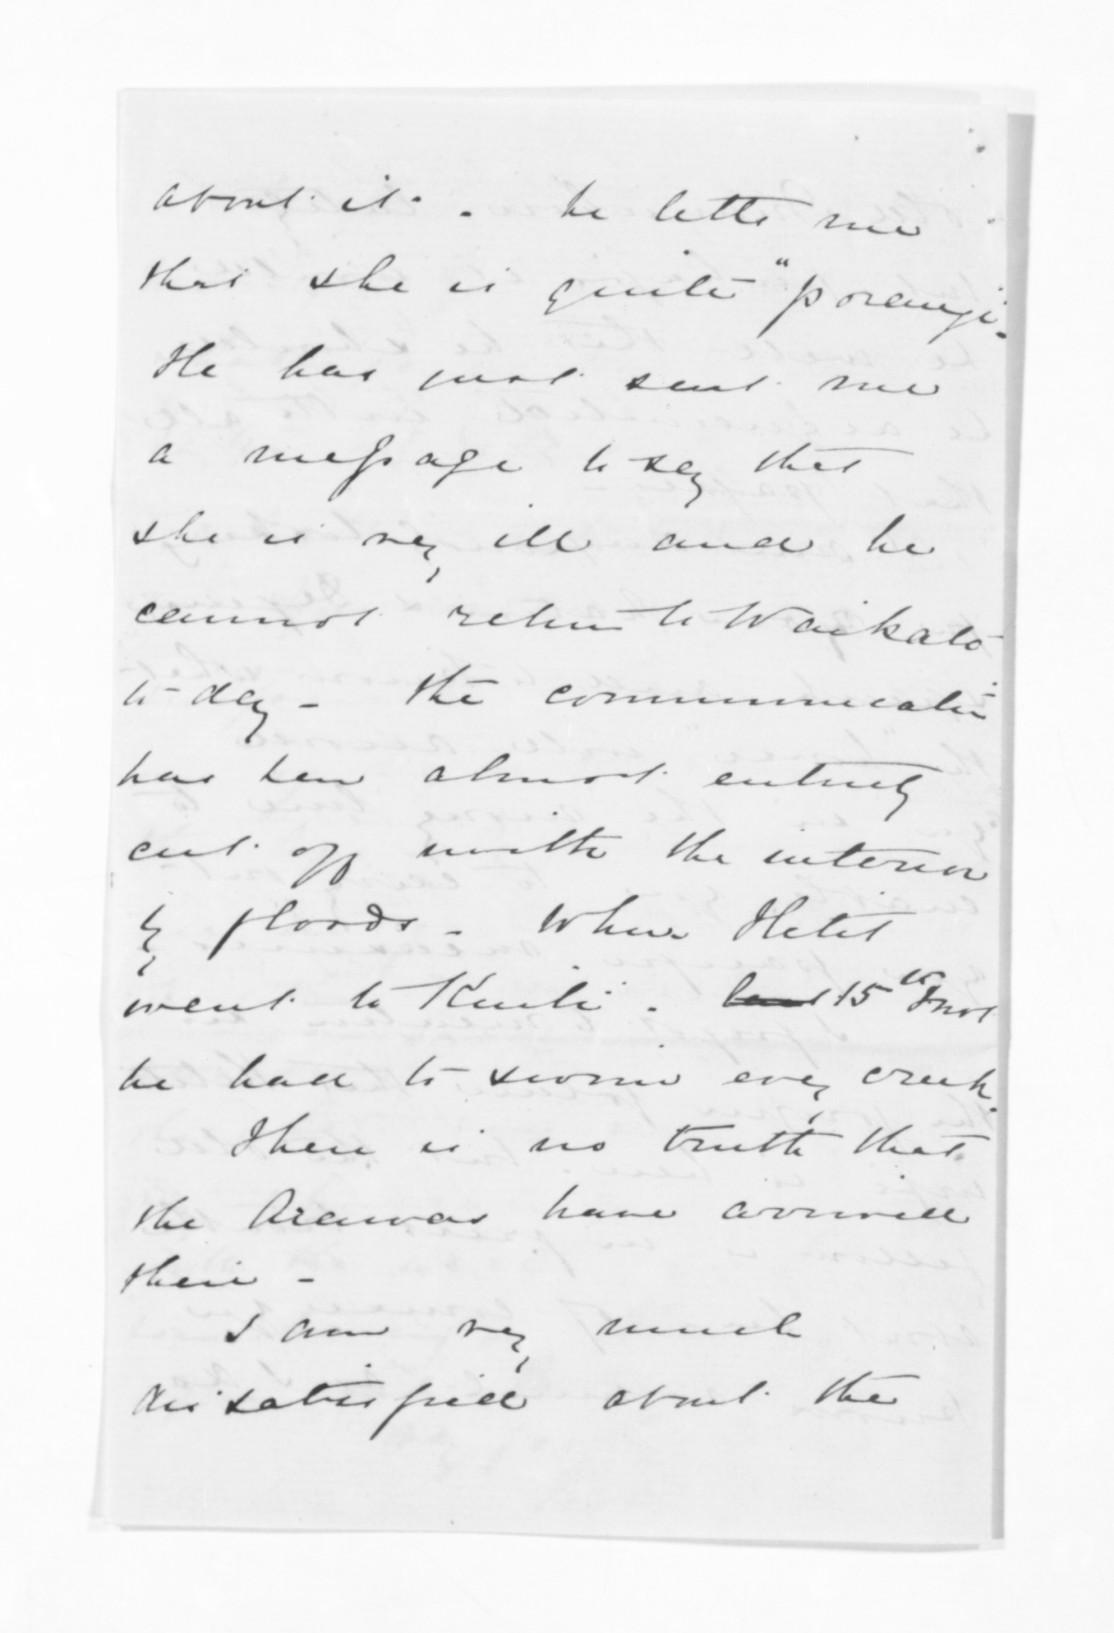 about it. he tells me
that she is quite "porangi".
He has just sent me
a message to say that
she is very ill and he
cannot return to Waikato
to-day - the communication
has been almost entirely
cut off with the interior
by floods - When Hetet
went to Kuiti. 15th Inst
he had to swim every creek.
There is no truth that
the Arawas have arrived
there -
I am very much
dissatisfied about the